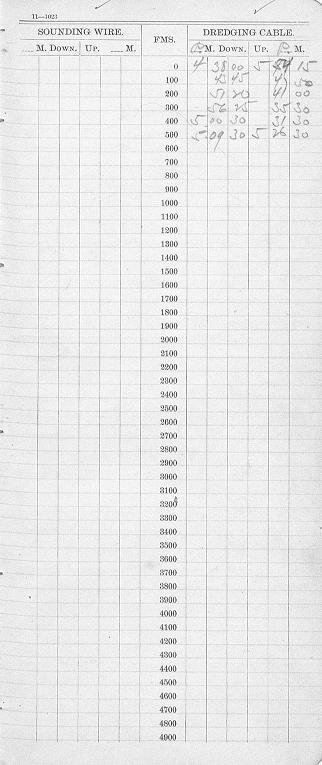 11—1023
SOUNDING WIRE. FMS. DREDGING CABLE.
M. DOWN. UP. M. P. M. DOWN. UP. P. M.
0 4 38 00 5 54 15
100 45 45 47 50
200 51 20 41 00
300 56 25 35 30
400 5 00 30 31 30
500 5 09 30 5 26 30
600
700
800
900
1000
1100
1200
1300
1400
1500
1600
1700
1800
1900
2000
2100
2200
2300
2400
2500
2600
2700
2800
2900
3000
3100
3200
3300
3400
3500
3600
3700
3800
3900
4000
4100
4200
4300
4400
4500
4600
4700
4800
4900